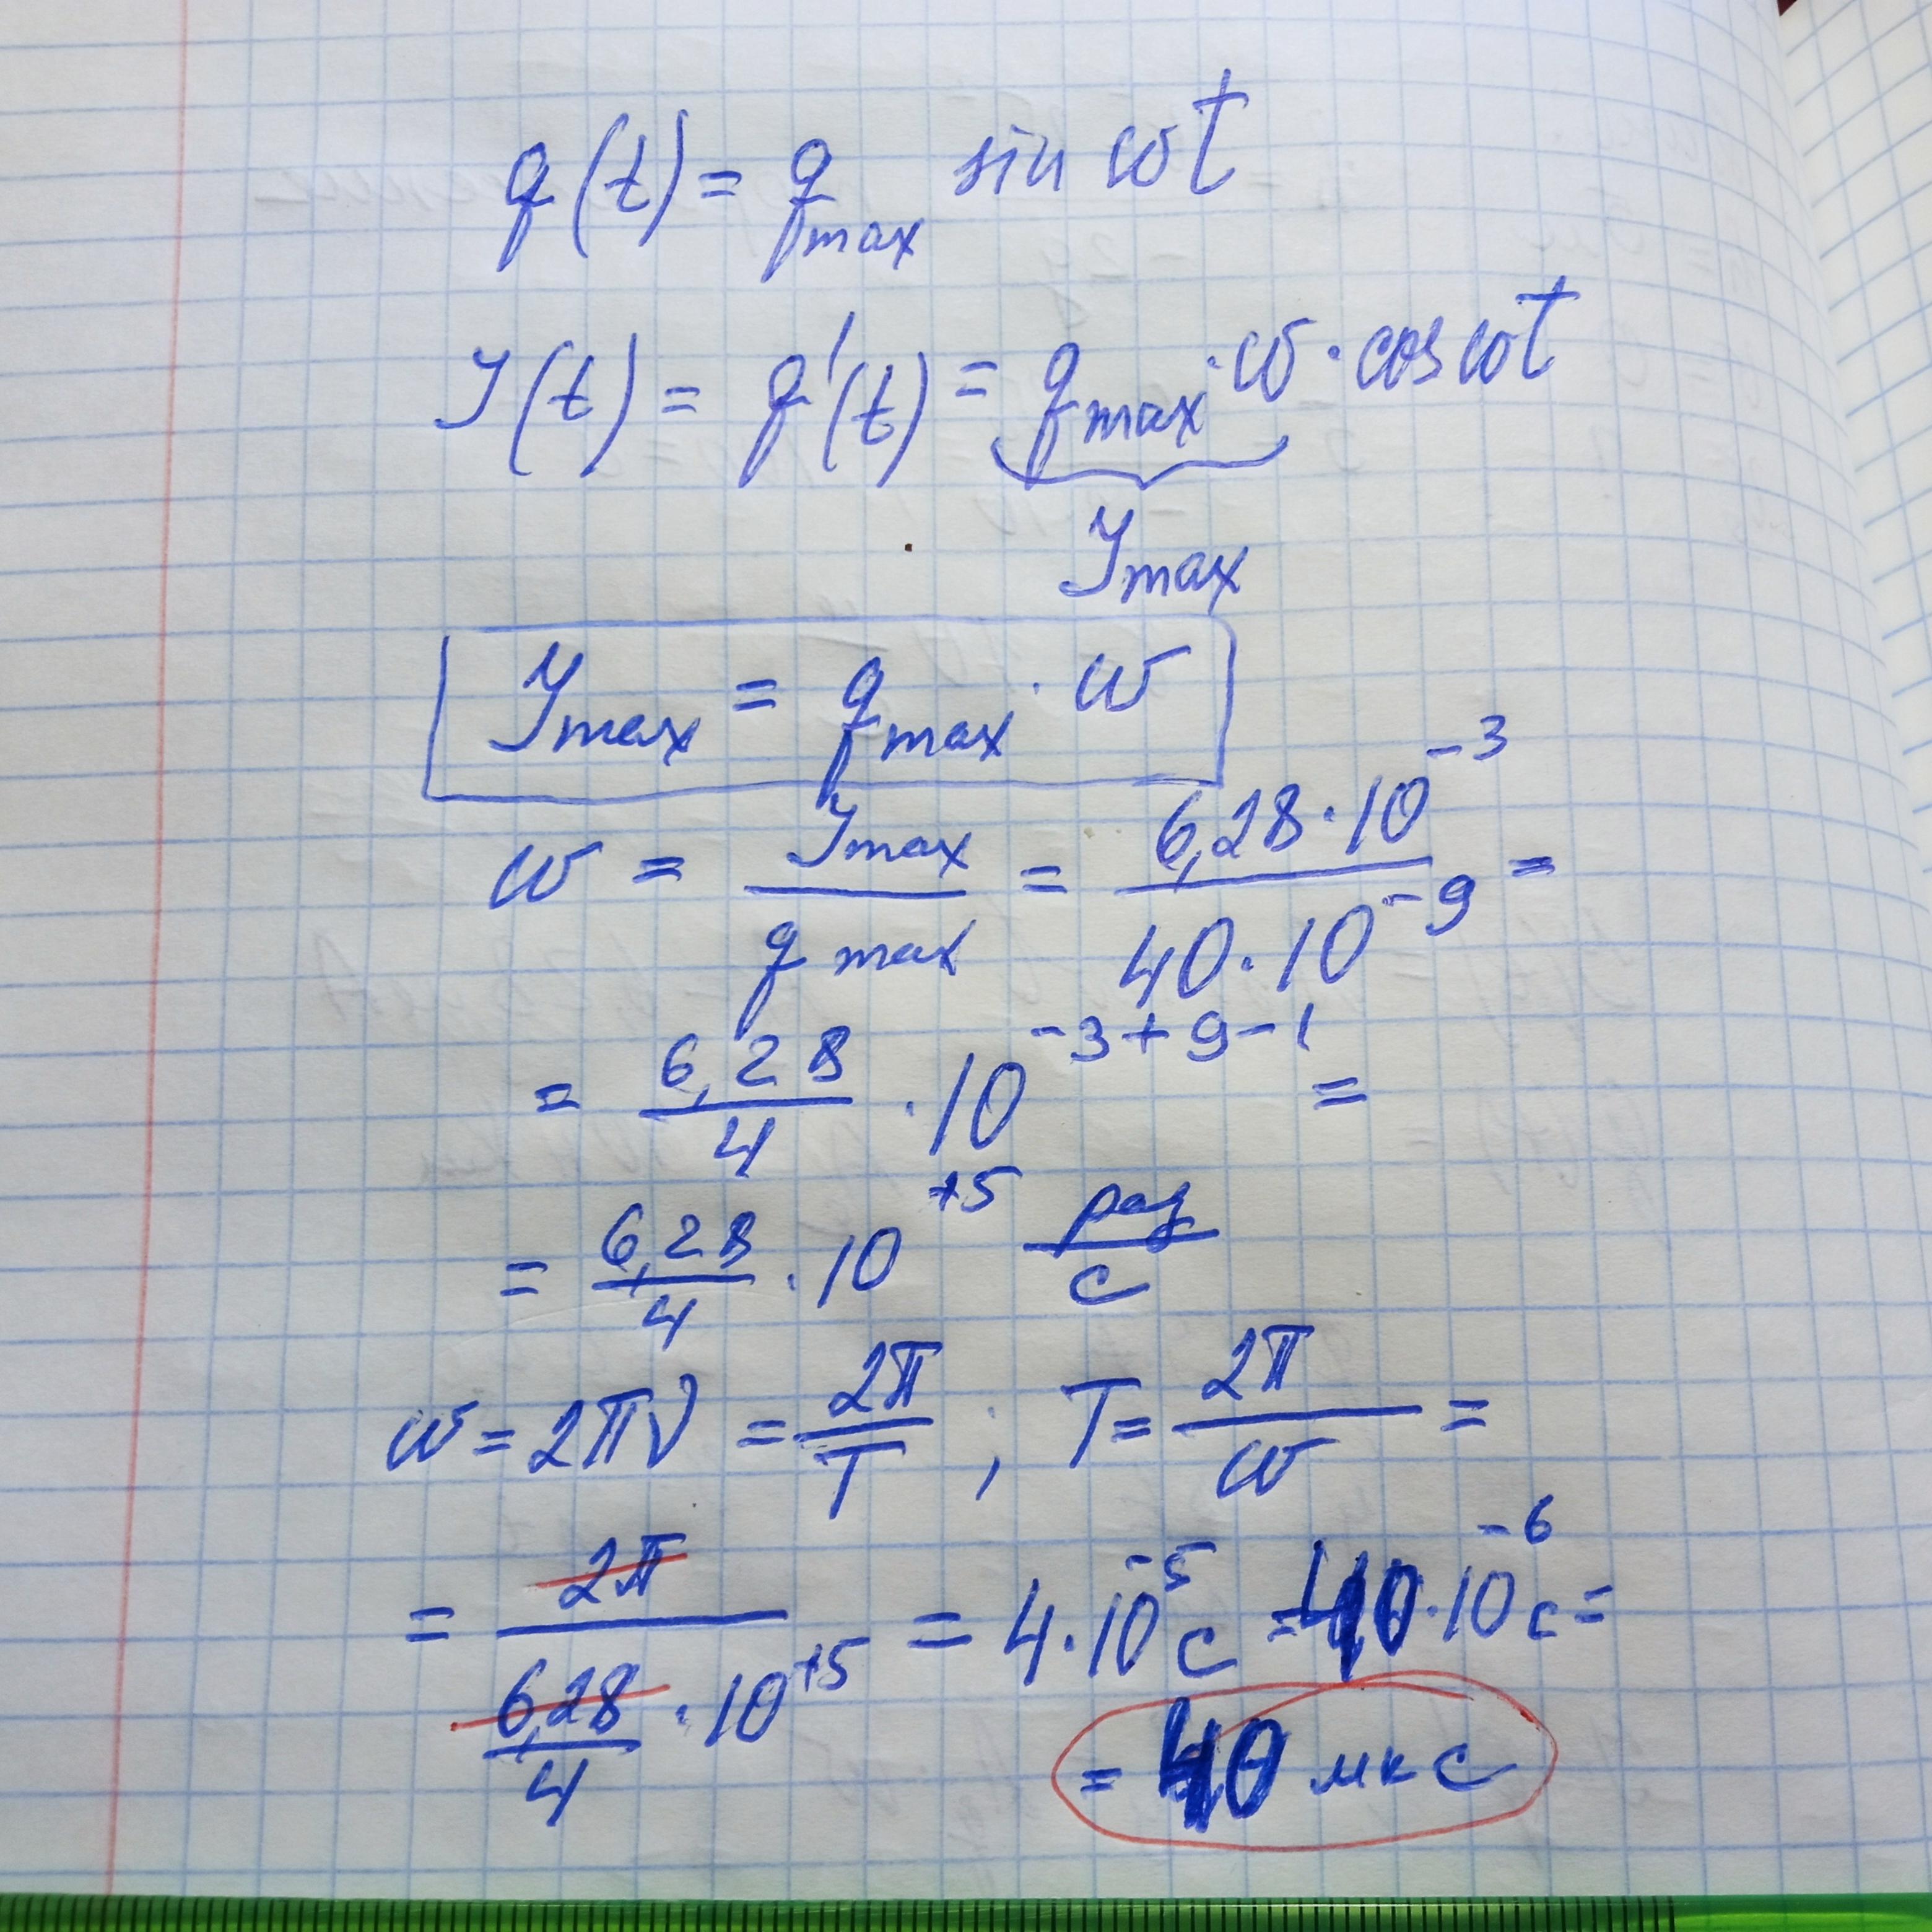 q(t) = q max sin ωt
I(t) = q'(t) = q max · ω · cos ωt
I max
I max = q max · ω
ω = I max / q max = 6,28 · 10^-3 / 40 · 10^-9 =
= 6,28 / 4 · 10^-3+9-1 =
= 6,28 / 4 · 10^+5 рад / с
ω = 2πν = 2π / T ; T = 2π / ω =
= 2π / (6,28 / 4 · 10^+5) = 4 · 10^-5 с = 40 · 10^-6 с =
= 40 мкс